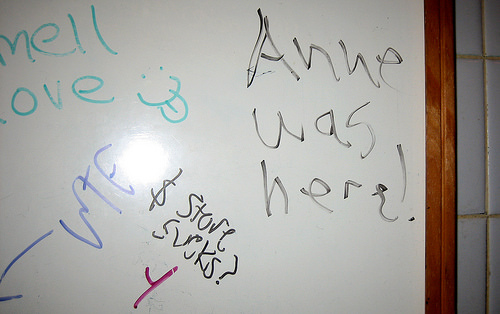 mell
Love
Anne
was
here!
WTF
$ store
sucks?
Y